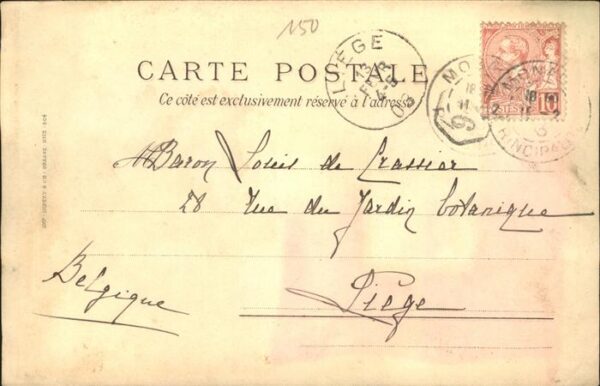 150
LIÉGE
13
FEVR
4-5
03
CARTE POSTALE
Ce côté est exclusivement réservé à l'adresse
10
MON
18
PRINCIPAUTE
M. Baron Louis de Crassier
28 Rue du Jardin botanique
Liége
Belgique